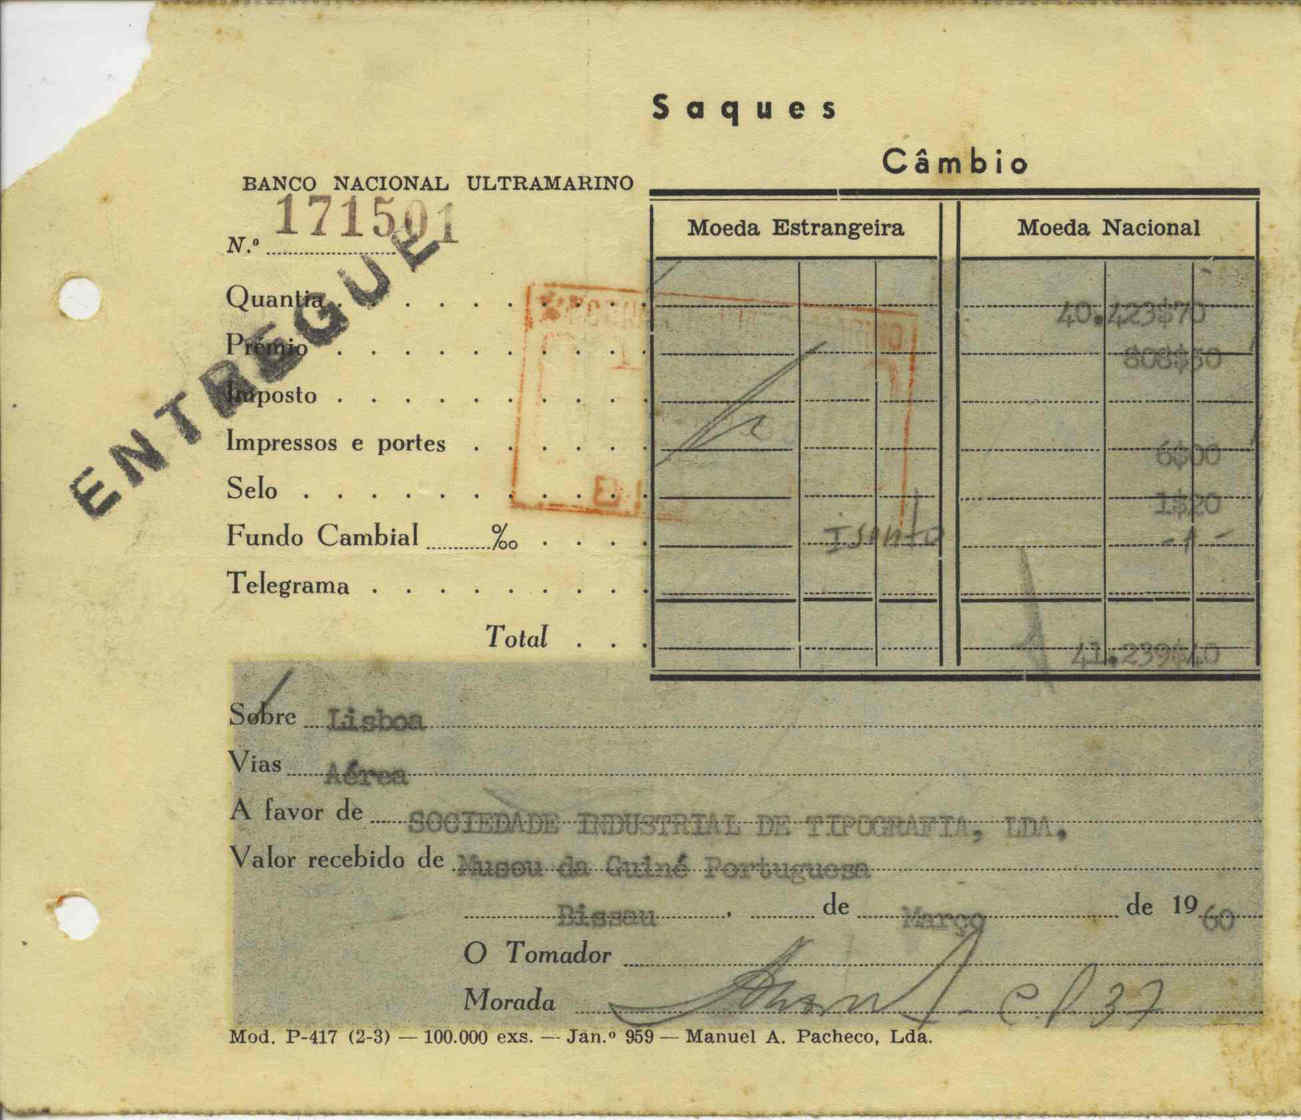 Saques
Câmbio
BANCO NACIONAL ULTRAMARINO
N.º 171501
ENTREGUE
Moeda Estrangeira Moeda Nacional
Quantia . . . . . . . . . 40.423$70
Prémio . . . . . . . . . . 808$50
Imposto . . . . . . . . . .
Impressos e portes . . . . . . 6$00
Selo . . . . . . . . . . . 1$20
Fundo Cambial ........‰ . . . . Isento - 1 -
Telegrama . . . . . . . . .
Total . . . 41.239$40
Sobre Lisboa
Vias Aérea
A favor de SOCIEDADE INDUSTRIAL DE TIPOGRAFIA, LDA.
Valor recebido de Museu da Guiné Portuguesa
Bissau, de Março de 1960
O Tomador
Morada C P 37
Mod. P-417 (2-3) — 100.000 exs. — Jan.º 959 — Manuel A. Pacheco, Lda.